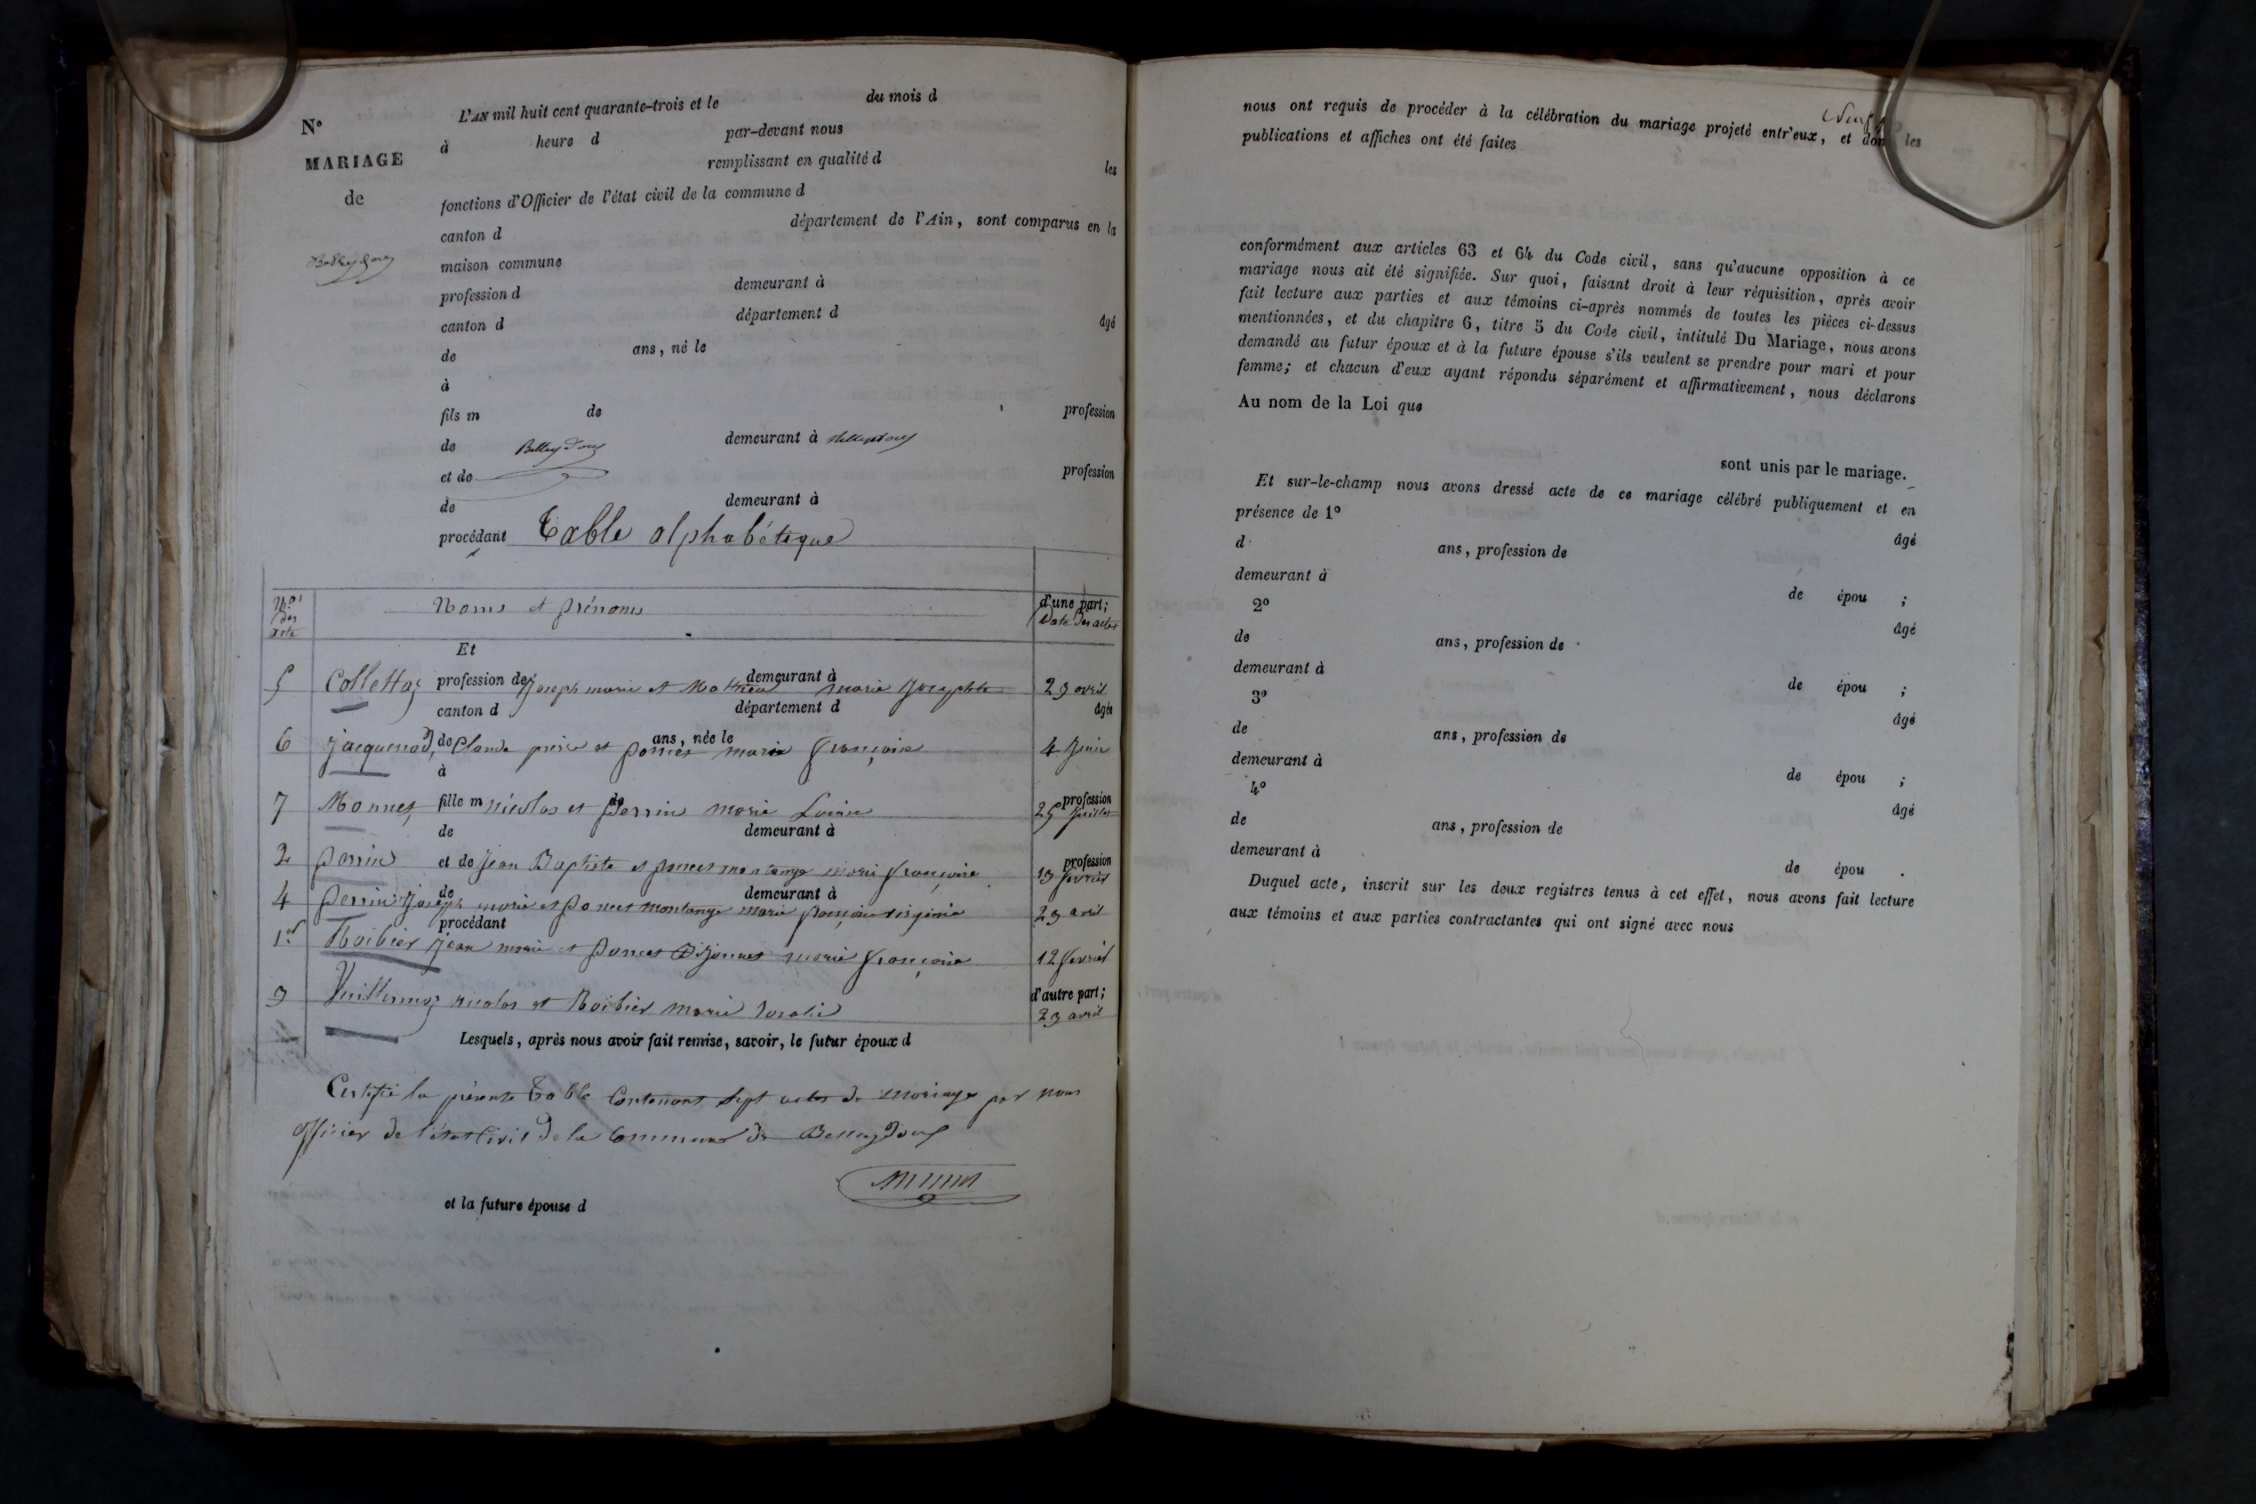 L'AN mil huit cent quarante-trois et le du mois d
N°
à heure d par-devant nous
MARIAGE
remplissant en qualité d les
de
fonctions d'Officier de l'état civil de la commune d
canton d département de l'Ain, sont comparus en la
Belleydoux
maison commune
profession d demeurant à
canton d département d âgé
de ans, né le
à
fils m de profession
de Belleydoux demeurant à Belleydoux
et de profession
de demeurant à
procédant Table alphabétique
Nos des acte Noms et prénoms d'une part; Date des actes
Et
profession de demeurant à
5 Collettaz Joseph marie et Mathieu marie Josephte 23 avril
canton d département d âgée
de ans, née le
6 Jacquenod, Claude prière et poncet marie françoise 4 Juin
à
fille m de profession
7 Monnet, nicolas et perrin marie Louise 25 Juillet
de demeurant à
et de profession
2 perrin Jean Baptiste et poncet montange marie françoise 13 fevrier
de demeurant à
4 perrin Joseph marie et poncet montange marie françoise virginie 23 avril
procédant
1er Roibier Jean marie et poncet Bijonnet marie françoise 12 fevrier
d'autre part;
3 Vuillermoz nicolas et Roibier marie rosalie 23 avril
Lesquels, après nous avoir fait remise, savoir, le futur époux d
Certifié la présente Table Contenant sept actes de mariage par nous
officier de l'état Civil de la Commune de Belleydoux
et la future épouse d
nous ont requis de procéder à la célébration du mariage projeté entr'eux, et dont les
publications et affiches ont été faites
conformément aux articles 63 et 64 du Code civil, sans qu'aucune opposition à ce
mariage nous ait été signifiée. Sur quoi, faisant droit à leur réquisition, après avoir
fait lecture aux parties et aux témoins ci-après nommés de toutes les pièces ci-dessus
mentionnées, et du chapitre 6, titre 5 du Code civil, intitulé Du Mariage, nous avons
demandé au futur époux et à la future épouse s'ils veulent se prendre pour mari et pour
femme; et chacun d'eux ayant répondu séparément et affirmativement, nous déclarons
Au nom de la Loi que
sont unis par le mariage.
Et sur-le-champ nous avons dressé acte de ce mariage célébré publiquement et en
présence de 1° âgé
d ans, profession de
demeurant à de épou ;
2° âgé
de ans, profession de
demeurant à de épou ;
3° âgé
de ans, profession de
demeurant à de épou ;
4° âgé
de ans, profession de
demeurant à de épou .
Duquel acte, inscrit sur les deux registres tenus à cet effet, nous avons fait lecture
aux témoins et aux parties contractantes qui ont signé avec nous